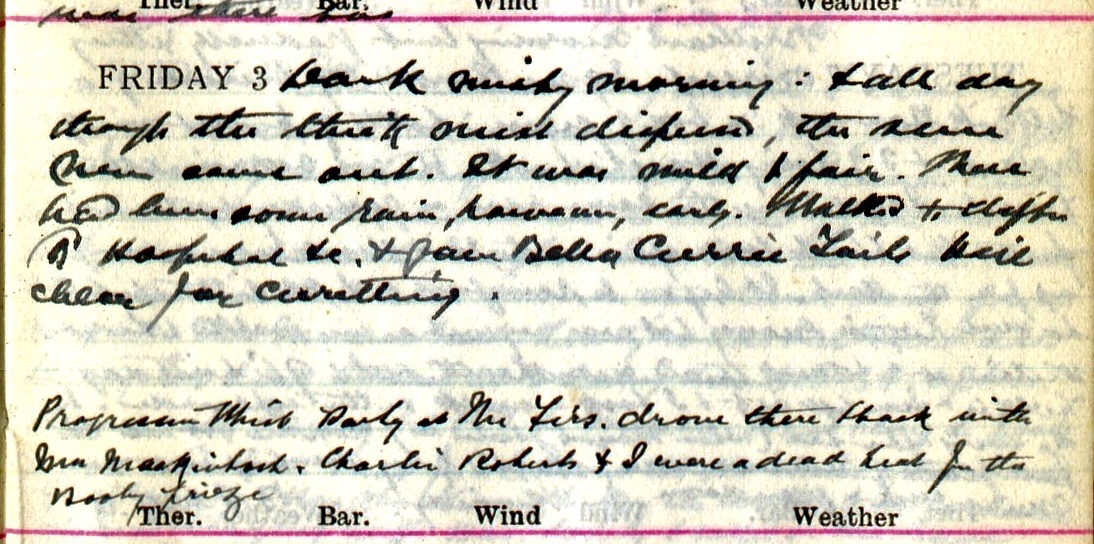 Ther. Bar. Wind Weather
FRIDAY 3 Dark misty morning: & all day
though the thick mist dispersed, the sun
never came out. It was mild & fair. There
had been some rain, however, early. Walked to
Hospital &c. & gave Bella Currie
for Curetting.
Progressive Whist Party at The Firs. drove there & back with
Mrs Mackintosh. Charlie Roberts & I were a dead heat for the
Booby Prize
Ther. Bar. Wind Weather